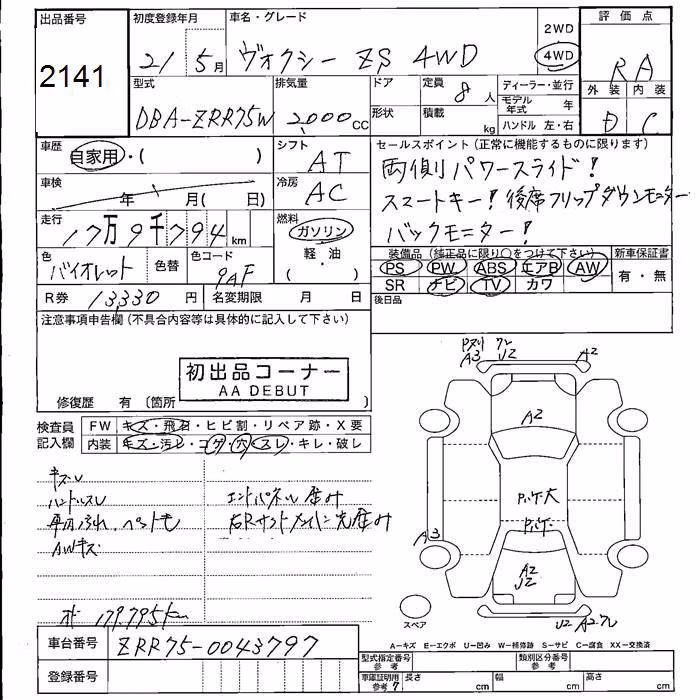 出品番号
2141
初度登録年月
21 5月
車名・グレード
ヴォクシー ZS 4WD
2WD
4WD
評価点
RA
外装 内装
D C
型式
DBA-ZRR75W
排気量
2000CC
ドア
形状
定員
8人
積載
kg
ディーラー・並行
モデル年式 年
ハンドル 左・右
車歴
自家用・( )
シフト
AT
車検
年 月( 日)
冷房
AC
走行
17万9千794km
燃料
ガソリン
軽・油
・( )
色
バイオレット
色替
色コード
9AF
R券 13,330円
名変期限 月 日
セールスポイント(正常に機能するものに限ります)
両側パワースライド!
スマートキー!後席フリップダウンモニター
バックモニター!
装備品(純正品に限り○をつけて下さい)
新車保証書
PS PW ABS エアB AW
SR ナビ TV カワ
有・無
後日品
注意事項申告欄(不具合内容等は具体的に記入して下さい)
初出品コーナー
AA DEBUT
修復歴 有 〔箇所 〕
検査員記入欄
FW キズ・飛石・ヒビ割・リペア跡・X要
内装 キズ・汚レ・コゲ・穴・スレ・キレ・破レ
キズレ
ハンドルスレ
AWキズ
エンドパネル歪み
179,795km
車台番号 ZRR75-0043797
登録番号
A3
U2
A2
A2
A3
A2
U2
U2
スペア
A-キズ E-エクボ U-凹み W-補修跡 S-サビ C-腐食 XX-交換済
型式指定番号 参考
類別区分番号 参考
車庫証明用 参考 7
長さ cm
幅 cm
高さ cm